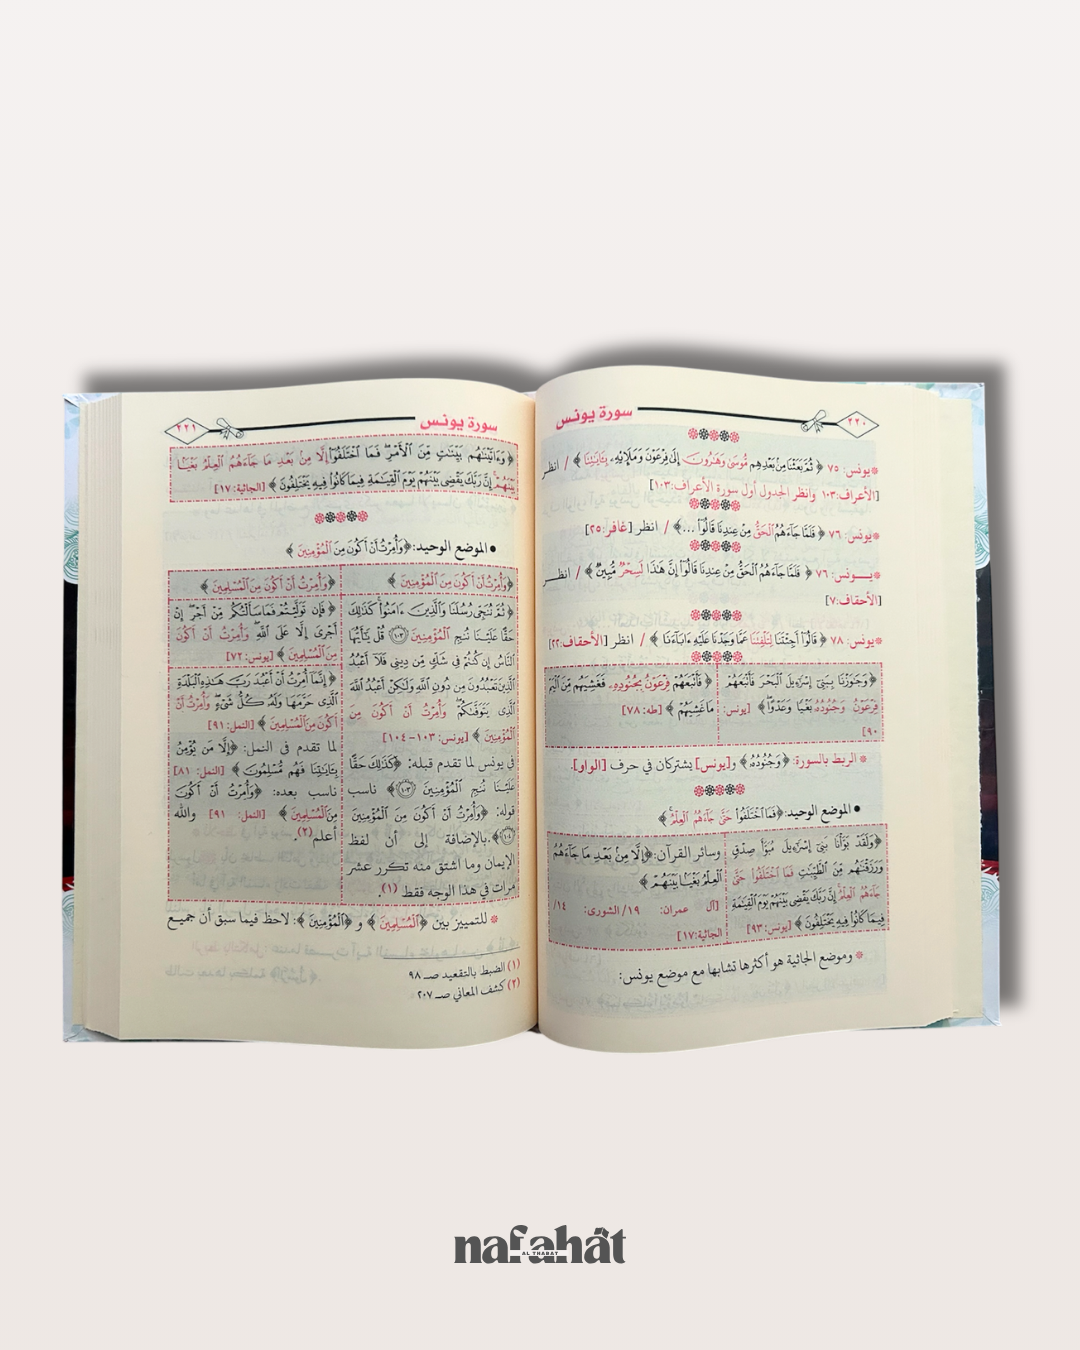 سورة يونس
٢٢٠
*يونس: ٧٥ ﴿ ثُمَّ بَعَثْنَا مِنۢ بَعْدِهِم مُّوسَىٰ وَهَـٰرُونَ إِلَىٰ فِرْعَوْنَ وَمَلَإِيهِۦ بِـَٔايَـٰتِنَا ﴾ / انظر
[الأعراف:١٠٣ وانظر الجدول أول سورة الأعراف:١٠٣]
*يونس: ٧٦ ﴿ فَلَمَّا جَآءَهُمُ الْحَقُّ مِنْ عِندِنَا قَالُوٓا۟ ...﴾ / انظر [غافر:٢٥]
*يـــونس: ٧٦ ﴿ فَلَمَّا جَآءَهُمُ الْحَقُّ مِنْ عِندِنَا قَالُوٓا۟ إِنَّ هَـٰذَا لَسِحْرٌ مُّبِينٌ ﴾ / انظــر
[الأحقاف:٧]
*يونس: ٧٨ ﴿ قَالُوٓا۟ أَجِئْتَنَا لِتَلْفِتَنَا عَمَّا وَجَدْنَا عَلَيْهِ ءَابَآءَنَا ﴾ / انظر [الأحقاف:٢٢]
﴿ وَجَـٰوَزْنَا بِبَنِىٓ إِسْرَٰٓءِيلَ الْبَحْرَ فَأَتْبَعَهُمْ
فِرْعَوْنُ وَجُنُودُهُۥ بَغْيًا وَعَدْوًا ﴾ [يونس:
٩٠]
﴿ فَأَتْبَعَهُمْ فِرْعَوْنُ بِجُنُودِهِۦ فَغَشِيَهُم مِّنَ الْيَمِّ
مَا غَشِيَهُمْ ﴾ [طه: ٧٨]
* الربط بالسورة: ﴿ وَجُنُودُهُۥ ﴾ و[يونس] يشتركان في حرف [الواو].
• الموضع الوحيد: ﴿ فَمَا اخْتَلَفُوا۟ حَتَّىٰ جَآءَهُمُ الْعِلْمُ ﴾
﴿ وَلَقَدْ بَوَّأْنَا بَنِىٓ إِسْرَٰٓءِيلَ مُبَوَّأَ صِدْقٍ
وَرَزَقْنَـٰهُم مِّنَ الطَّيِّبَـٰتِ فَمَا اخْتَلَفُوا۟ حَتَّىٰ
جَآءَهُمُ الْعِلْمُ إِنَّ رَبَّكَ يَقْضِى بَيْنَهُمْ يَوْمَ الْقِيَـٰمَةِ
فِيمَا كَانُوا۟ فِيهِ يَخْتَلِفُونَ ﴾ [يونس: ٩٣]
وسائر القرآن: ﴿ إِلَّا مِنۢ بَعْدِ مَا جَآءَهُمُ
الْعِلْمُ بَغْيًۢا بَيْنَهُمْ ﴾
[آل عمران: ١٩/ الشورى: ١٤/
الجاثية: ١٧]
* وموضع الجاثية هو أكثرها تشابها مع موضع يونس:
سورة يونس
٢٢١
﴿ وَءَاتَيْنَـٰهُم بَيِّنَـٰتٍ مِّنَ الْأَمْرِ فَمَا اخْتَلَفُوٓا۟ إِلَّا مِنۢ بَعْدِ مَا جَآءَهُمُ الْعِلْمُ بَغْيًۢا
بَيْنَهُمْ إِنَّ رَبَّكَ يَقْضِى بَيْنَهُمْ يَوْمَ الْقِيَـٰمَةِ فِيمَا كَانُوا۟ فِيهِ يَخْتَلِفُونَ ﴾ [الجاثية: ١٧]
• الموضع الوحيد: ﴿ وَأُمِرْتُ أَنْ أَكُونَ مِنَ الْمُؤْمِنِينَ ﴾
﴿ وَأُمِرْتُ أَنْ أَكُونَ مِنَ الْمُؤْمِنِينَ ﴾
﴿ وَأُمِرْتُ أَنْ أَكُونَ مِنَ الْمُسْلِمِينَ ﴾
﴿ ثُمَّ نُنَجِّى رُسُلَنَا وَالَّذِينَ ءَامَنُوا۟ كَذَٰلِكَ
حَقًّا عَلَيْنَا نُنجِ الْمُؤْمِنِينَ ١٠٣ قُلْ يَـٰٓأَيُّهَا
النَّاسُ إِن كُنتُمْ فِى شَكٍّ مِّن دِينِى فَلَآ أَعْبُدُ
الَّذِينَ تَعْبُدُونَ مِن دُونِ اللَّهِ وَلَـٰكِنْ أَعْبُدُ اللَّهَ
الَّذِى يَتَوَفَّىٰكُمْ وَأُمِرْتُ أَنْ أَكُونَ مِنَ
الْمُؤْمِنِينَ ﴾ [يونس: ١٠٣-١٠٤]
في يونس لما تقدم قبله: ﴿ كَذَٰلِكَ حَقًّا
عَلَيْنَا نُنجِ الْمُؤْمِنِينَ ١٠٣ ﴾ ناسب
قوله: ﴿ وَأُمِرْتُ أَنْ أَكُونَ مِنَ الْمُؤْمِنِينَ
١٠٤ ﴾. بالإضافة إلى أن لفظ
الإيمان وما اشتق منه تكرر عشر
مرات في هذا الوجه فقط (١).
﴿ فَإِن تَوَلَّيْتُمْ فَمَا سَأَلْتُكُم مِّنْ أَجْرٍ إِنْ
أَجْرِىَ إِلَّا عَلَى اللَّهِ وَأُمِرْتُ أَنْ أَكُونَ
مِنَ الْمُسْلِمِينَ ﴾ [يونس: ٧٢]
﴿ إِنَّمَآ أُمِرْتُ أَنْ أَعْبُدَ رَبَّ هَـٰذِهِ الْبَلْدَةِ
الَّذِى حَرَّمَهَا وَلَهُۥ كُلُّ شَىْءٍ وَأُمِرْتُ أَنْ
أَكُونَ مِنَ الْمُسْلِمِينَ ﴾ [النمل: ٩١]
لما تقدم في النمل: ﴿ إِلَّا مَن يُؤْمِنُ
بِـَٔايَـٰتِنَا فَهُم مُّسْلِمُونَ ﴾ [النمل: ٨١]
ناسب بعده: ﴿ وَأُمِرْتُ أَنْ أَكُونَ
مِنَ الْمُسْلِمِينَ ﴾ [النمل: ٩١] والله
أعلم (٢).
* للتمييز بين ﴿ الْمُسْلِمِينَ ﴾ و ﴿ الْمُؤْمِنِينَ ﴾: لاحظ فيما سبق أن جميع
(١) الضبط بالتقعيد صـ ٩٨
(٢) كشف المعاني صـ ٢٠٧
nafahât
AL THABAT